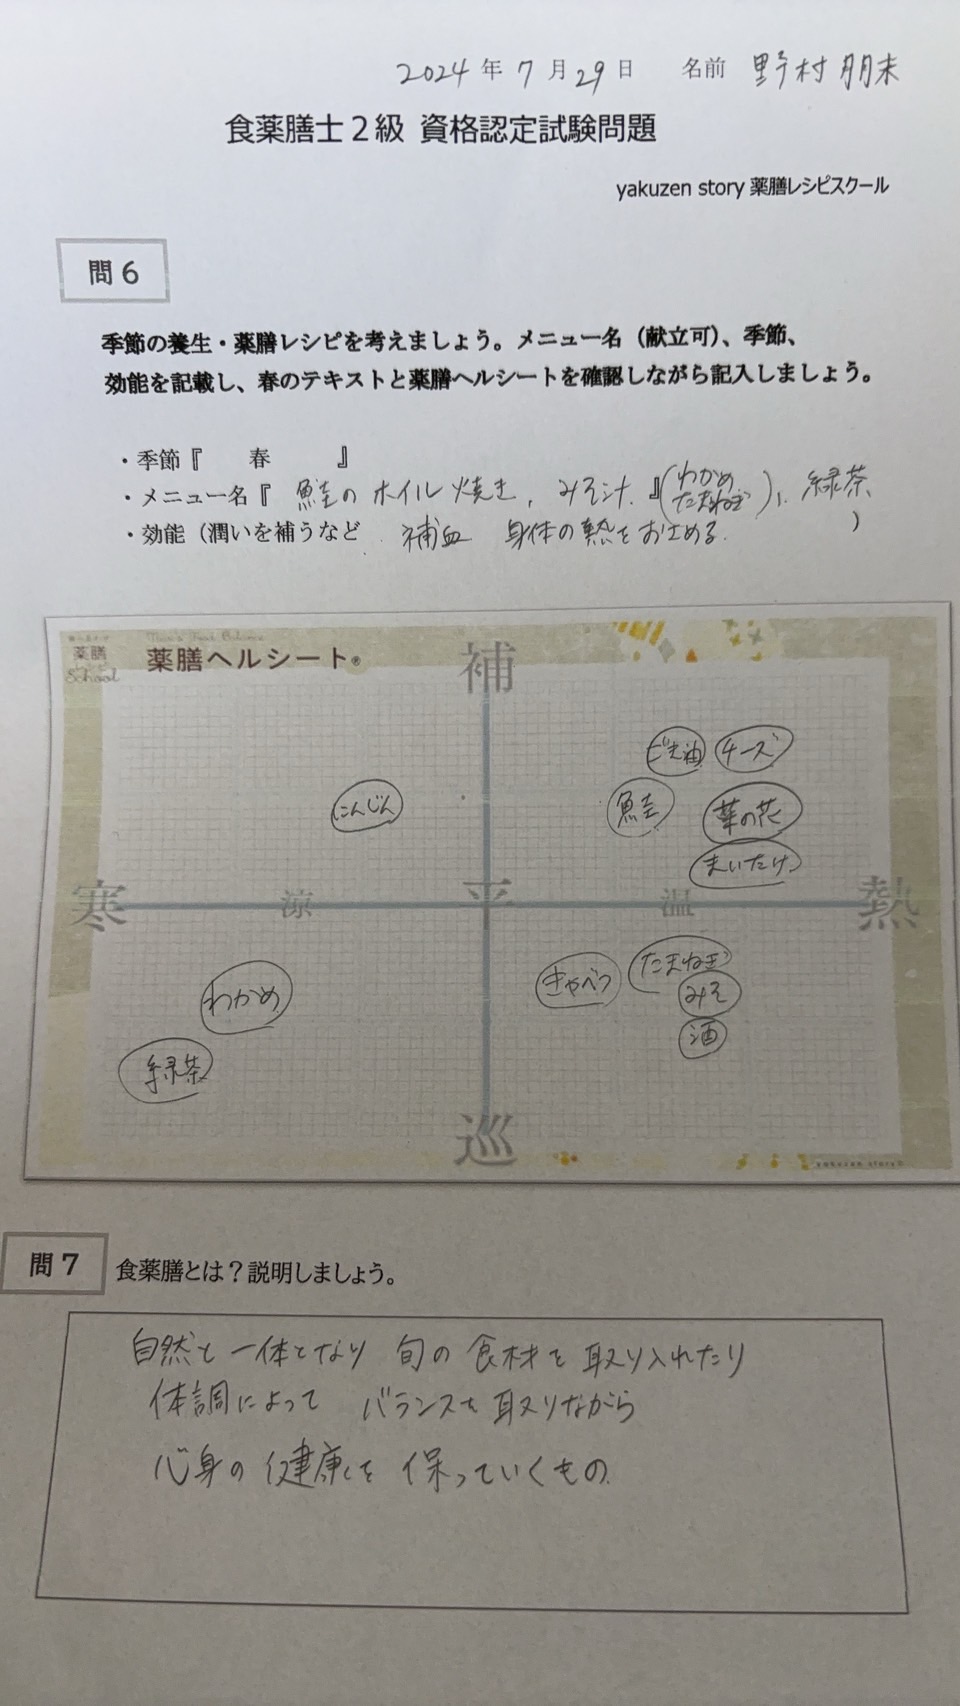 2024年 7月 29日 名前 野村 朋未
食薬膳士２級 資格認定試験問題
yakuzen story 薬膳レシピスクール
問６
季節の養生・薬膳レシピを考えましょう。メニュー名（献立可）、季節、
効能を記載し、春のテキストと薬膳ヘルシートを確認しながら記入しましょう。
・季節『 春 』
・メニュー名『 鮭の ホイル 焼き、みそ汁 』(わかめ たまねぎ)、緑茶
・効能（潤いを補うなど 補血 身体の熱をおさめる ）
薬膳
School
薬膳ヘルシート®
補
ごま油 チーズ
にんじん 鮭 菜の花
まいたけ
寒 涼 平 温 熱
わかめ きゃべつ たまねぎ
みそ
緑茶 酒
巡
yakuzen story
問７ 食薬膳とは？説明しましょう。
自然と 一体となり 旬の 食材を 取り入れたり
体調によって バランスを 取りながら
心身の 健康を 保っていくもの